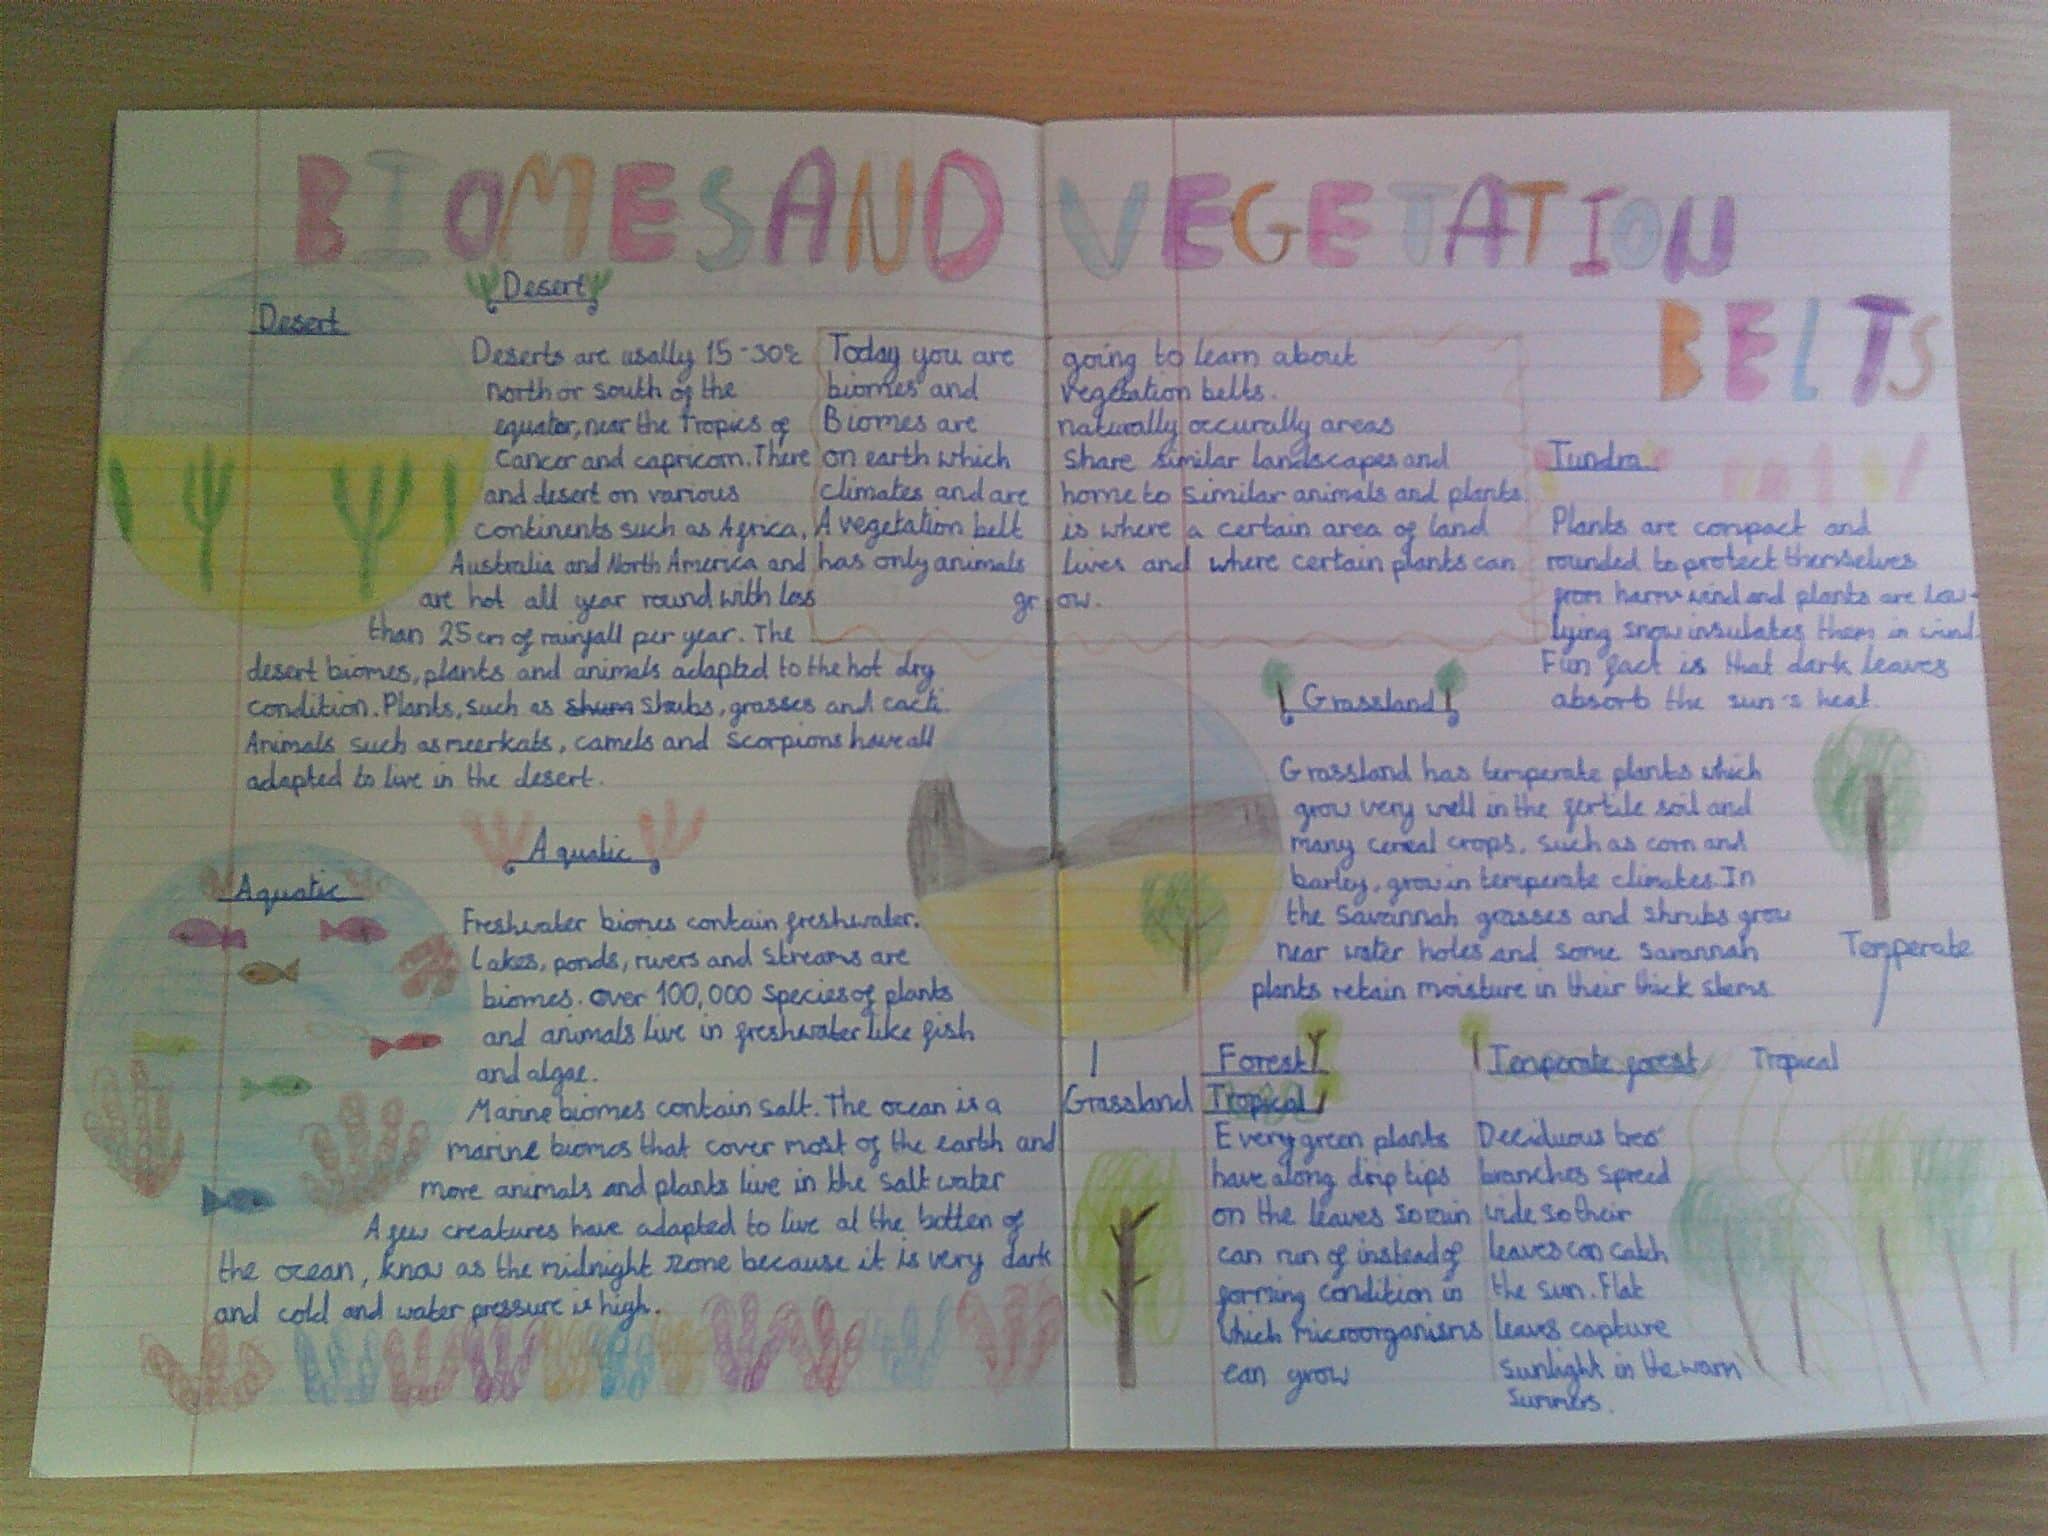 BIOMES AND VEGETATION
BELTS
Desert
Desert
Deserts are usally 15-30%
north or south of the
equator, near the Tropics of
Cancer and capricorn. There
and desert on various
continents such as Africa,
Australia and North America and
are hot all year round with less
than 25cm of rainfall per year. The
desert biomes, plants and animals adapted to the hot dry
condition. Plants, such as shrubs, grasses and cacti.
Animals such as meerkats, camels and scorpions have all
adapted to live in the desert.
Today you are going to learn about
biomes and vegetation belts.
Biomes are naturally occurally areas
on earth which share similar landscapes and
climates and are home to similar animals and plants.
A vegetation belt is where a certain area of land
has only animals lives and where certain plants can
grow.
Aquatic
Aquatic
Freshwater biomes contain freshwater.
Lakes, ponds, rivers and streams are
biomes. Over 100,000 species of plants
and animals live in freshwater like fish
and algae.
Marine biomes contain salt. The ocean is a
marine biomes that cover most of the earth and
more animals and plants live in the salt water
A few creatures have adapted to live at the botten of
the ocean, know as the midnight zone because it is very dark
and cold and water pressure is high.
Tundra
Plants are compact and
rounded to protect themselves
from harm wind and plants are low-
lying snow insulates them in wind.
Fun fact is that dark leaves
absorb the sun's heat.
Grassland
Grassland has temperate plants which
grow very well in the fertile soil and
many cereal crops, such as corn and
barley, grow in temperate climates. In
the Savannah grasses and shrubs grow
near water holes and some savannah
plants retain moisture in their thick stems
Grassland
Temperate
Forest
Tropical
Every green plants
have along drip tips
on the leaves so rain
can run of instead of
forming condition in
which microorganisms
can grow
Temperate forest
Deciduous tres'
branches spread
wide so their
leaves can catch
the sun. Flat
leaves capture
sunlight in the warm
summers.
Tropical